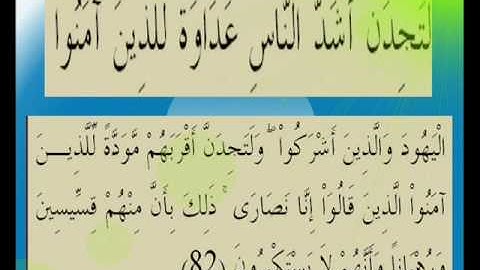 لَتَجِدَنَّ أَشَدَّ النَّاسِ عَدَاوَةً لِّلَّذِينَ آمَنُواْ
الْيَهُودَ وَالَّذِينَ أَشْرَكُواْ ۖ وَلَتَجِدَنَّ أَقْرَبَهُمْ مَّوَدَّةً لِّلَّذِيــنَ
آمَنُواْ الَّذِينَ قَالُوَاْ إِنَّا نَصَارَى ۚ ذَلِكَ بِأَنَّ مِنْهُمْ قِسِّيسِينَ
وَرُهْبَاناً وَأَنَّهُمْ لاَ يَسْتَكْبِرُونَ (82)